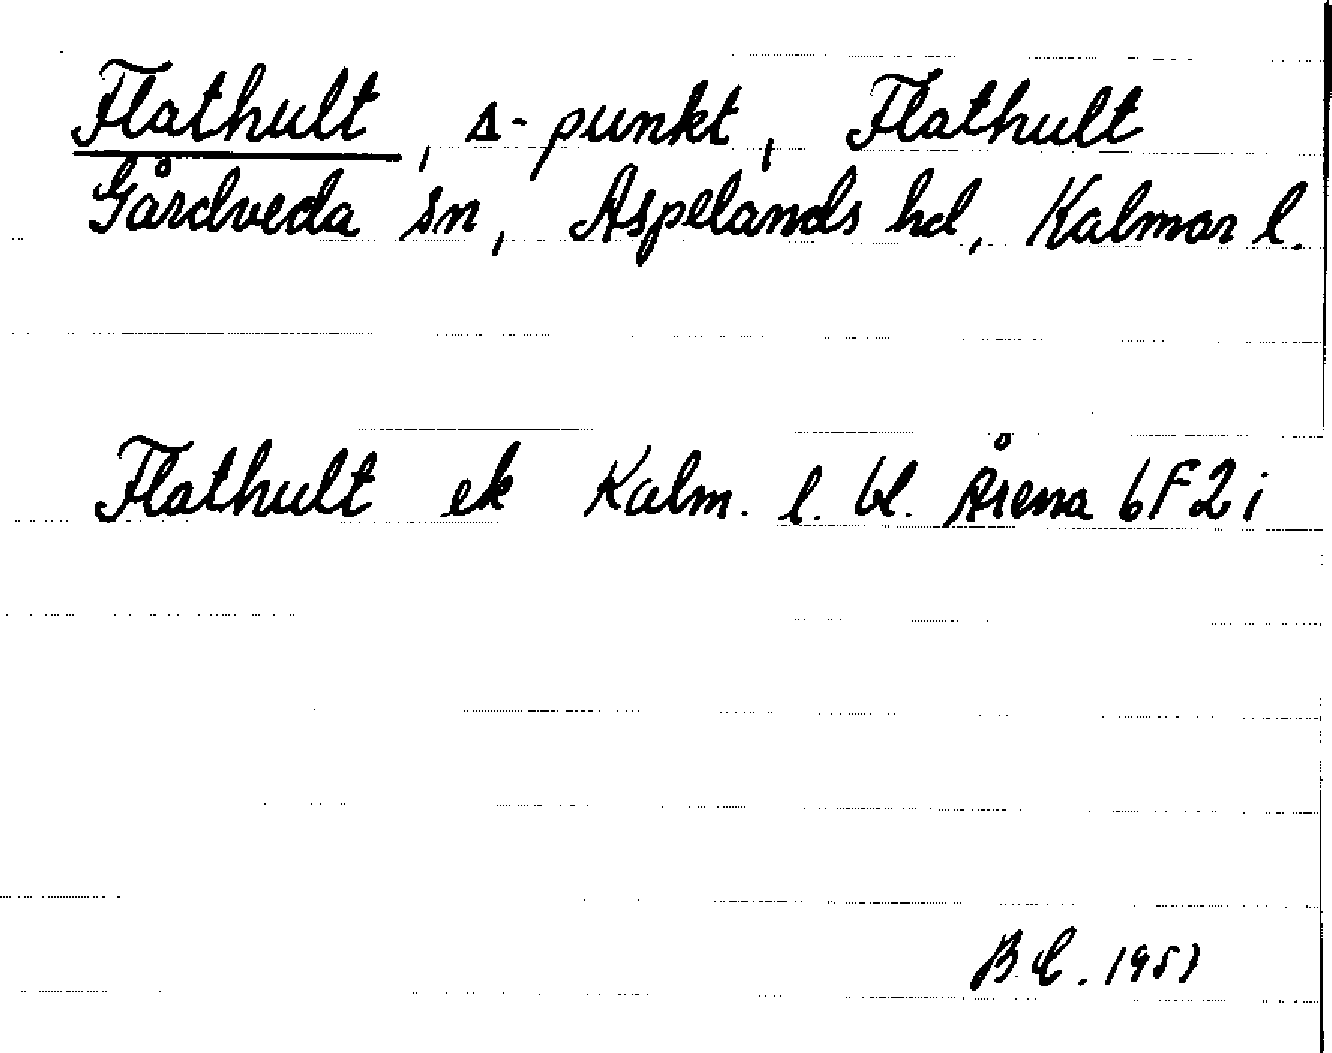 Flathult, ∆-punkt, Flathult
Gårdveda sn, Aspelands hd, Kalmar l.
Flathult ek Kalm. l. bl. Årena 6F2i
B.C. 1951